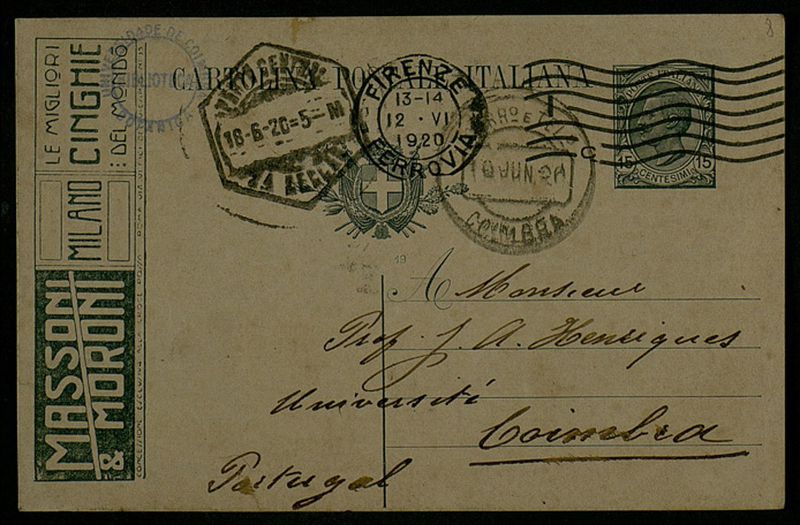 CARTOLINA POSTALE ITALIANA
LE MIGLIORI
CINGHIE
DEL MONDO
MILANO
MASSONI
& MORONI
BIBLIOTECA
16-6-20=5=M
FIRENZE
13-14
12 · VI
1920
FERROVIA
COIMBRA
15 15
CENTESIMI
19
A Monsieur
Prof. J. A. Henriques
Université
Coimbra
Portugal